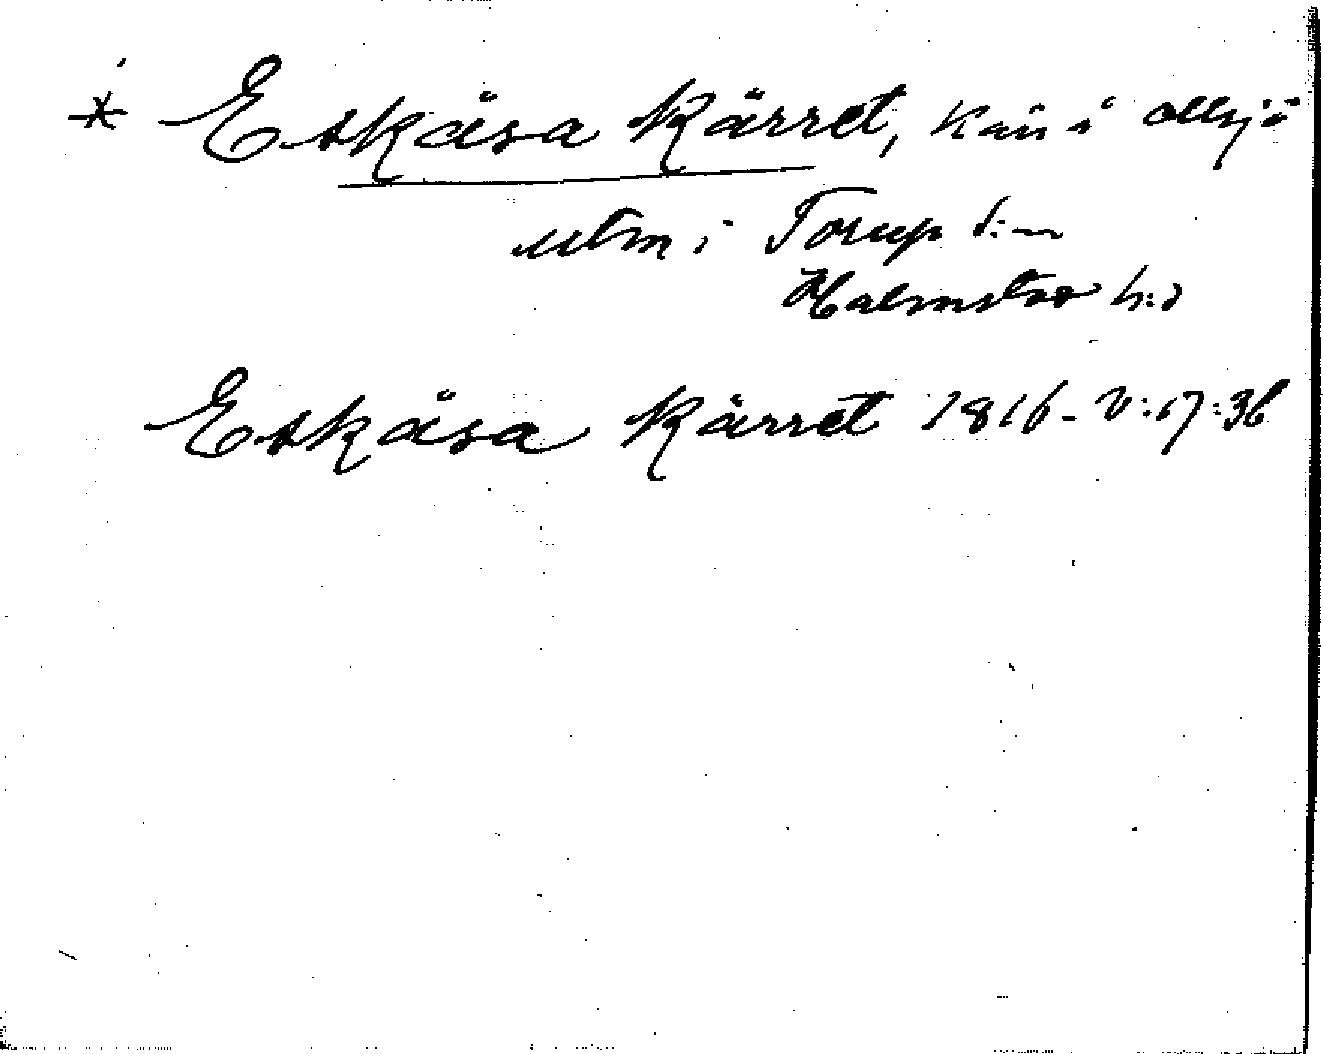 * Eskåsa Kärret, Kärr å Allsjö
utm i Torup s:n
Halmstad h:d
Eskåsa Kärret 1816 - V:17:36